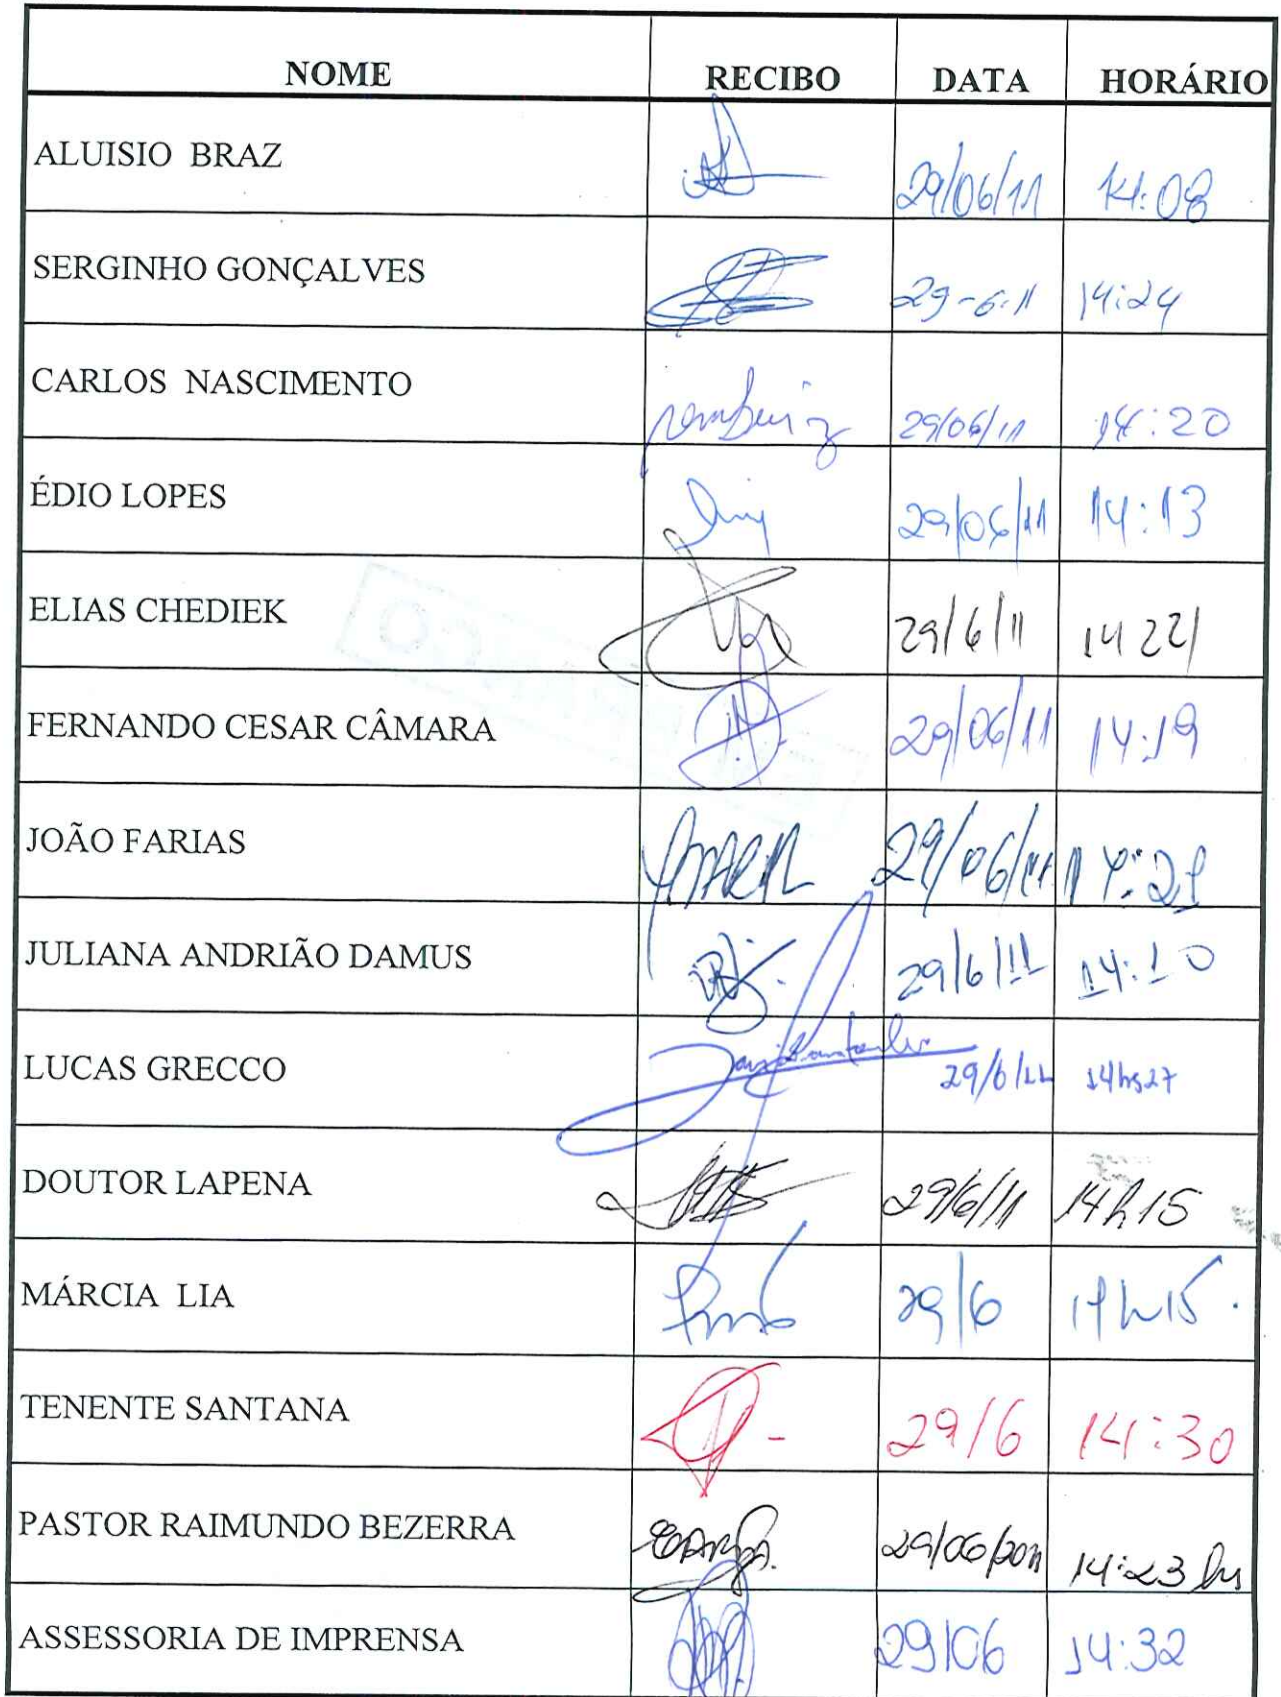 NOME RECIBO DATA HORÁRIO
ALUISIO BRAZ 29/06/11 14:08
SERGINHO GONÇALVES 29-6-11 14:24
CARLOS NASCIMENTO 29/06/11 14:20
ÉDIO LOPES 29/06/11 14:13
ELIAS CHEDIEK 29/6/11 14 22
FERNANDO CESAR CÂMARA 29/06/11 14:19
JOÃO FARIAS 29/06/11 14:21
JULIANA ANDRIÃO DAMUS 29/6/11 14:10
LUCAS GRECCO 29/6/11 14hs27
DOUTOR LAPENA 29/6/11 14h15
MÁRCIA LIA 29/6 14h15
TENENTE SANTANA 29/6 14:30
PASTOR RAIMUNDO BEZERRA 29/06/2011 14:23 hs
ASSESSORIA DE IMPRENSA 29/06 14:32